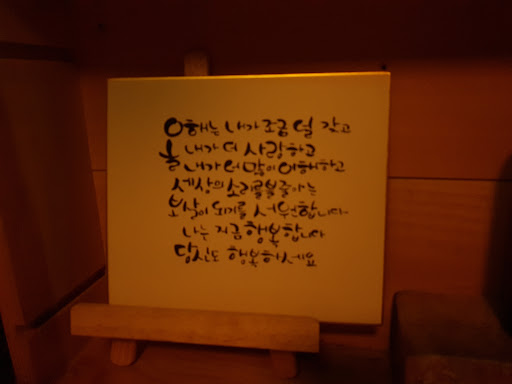 이해는 내가 조금 덜 갖고
늘 내가 더 사랑하고
늘 내가 더 많이 이해하고
세상의 소리를 보살피는
보살이 되기를 서원합니다
나는 지금 행복합니다
당신도 행복하세요